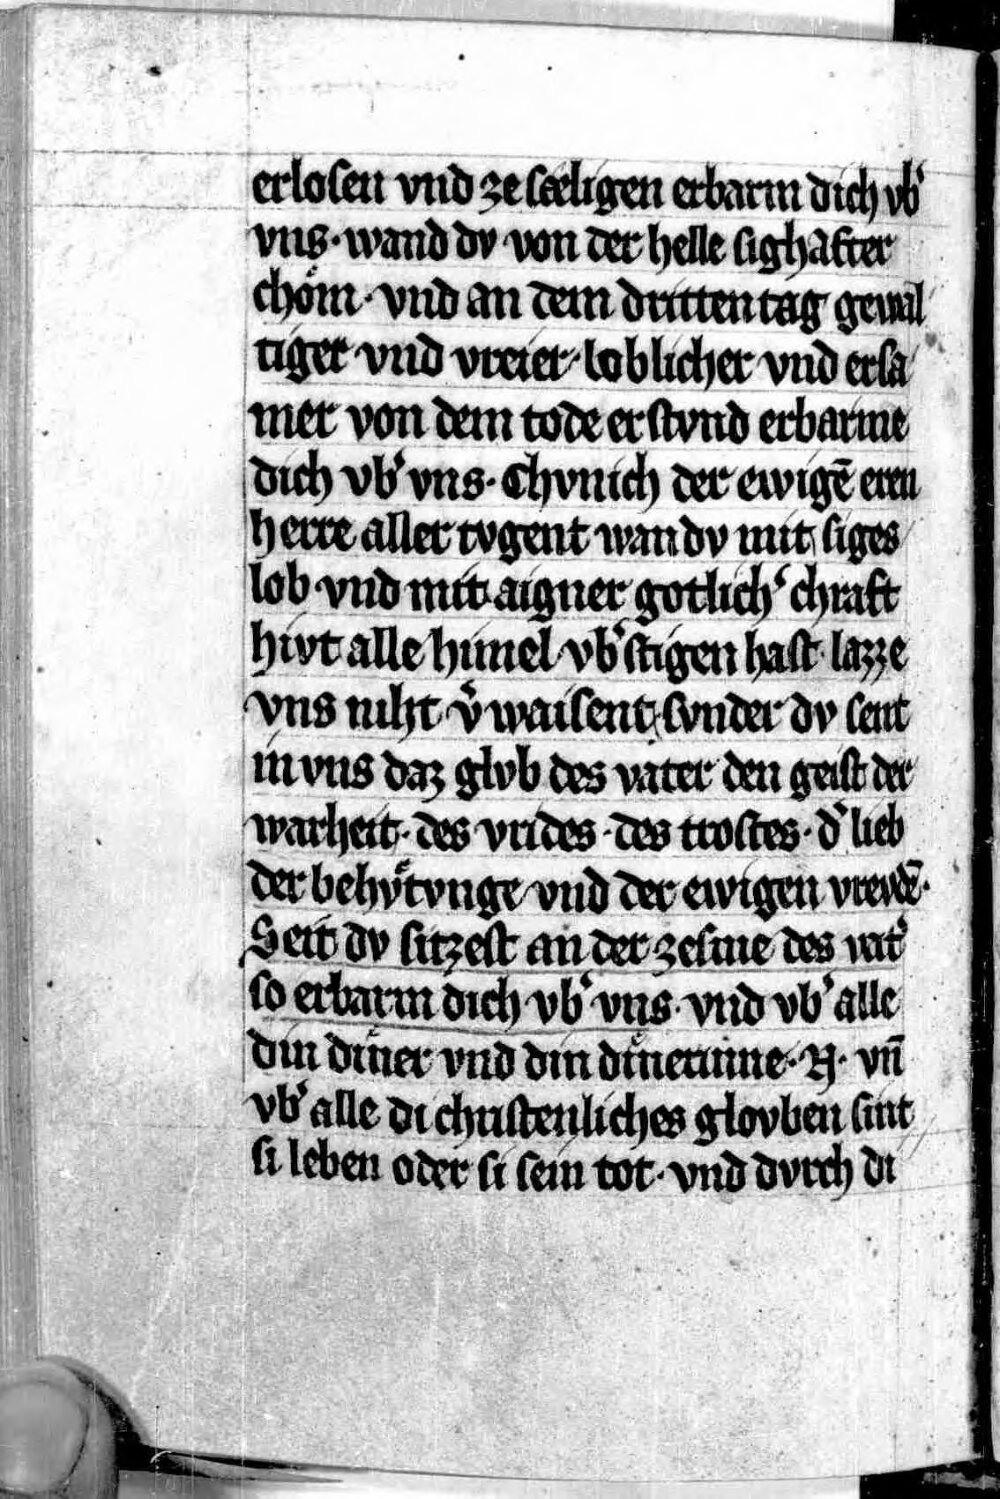 erlosen vnd ze sæligen erbarm dich vb᾽
vns · wand dv von der helle sighafter
chöm · vnd an dem dritten tag gewal
tiger vnd vreier · loblicher vnd ersa
mer von dem tode erstvnd erbarme
dich vb᾽ vns · Chvnich der ewigē eren
herre aller tvgent wan dv mit siges
lob vnd mit aigner gotlich᾽ chraft
hivt alle himel vb᾽stigen hast · lazze
vns niht v᾽waisent · svnder dv sent
in vns daz glvb des vater den geist der
warheit · des vrides · des trostes · d᾽ lieb
der behvͤtvnge vnd der ewigen vrevdē ·
Seit dv sitzest an der zesme des vat᾽
so erbarm dich vb᾽ vns · vnd vb᾽ alle
din diͤner vnd din diͤnerinne · N · vn̄
vb᾽ alle di christenliches glovben sint
si leben oder si sein tot · vnd dvrch di